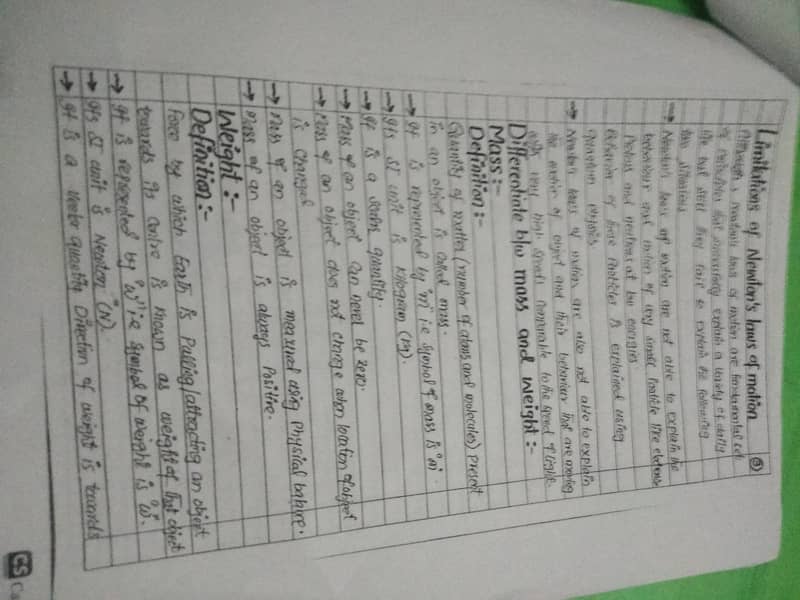 Limitations of Newton's laws of motion (9)
Although Newton's laws of motion are fundamental set
of principles that successfully explain a variety of daily
life but still they face to explain the following
two situations
→ Newton's laws of motion are not able to explain the
behaviour and motion of very small Particle like electrons
Protons and neutrons at low energies
Behavior of these Particles is explained using
quantum physics
→ Newton laws of motion are also not able to explain
the motion of object and their behaviour that are moving
with very high speeds comparable to the speed of light.
Differentiate b/w mass and weight:-
Mass:-
Definition:-
Quantity of matter (number of atoms and molecules) present
in an object is called mass.
→ It is represented by "m" i.e symbol of mass is "m".
→ Its SI unit is kilogram (kg).
→ It is a scalar quantity.
→ Mass of an object can never be zero.
→ Mass of an object does not change when location of object
is changed
→ Mass of an object is measured using Physical balance.
→ Mass of an object is always Positive.
Weight:-
Definition:-
Force by which Earth is Pulling/attracting an object
towards its centre is known as weight of that object
→ It is represented by "w" i.e symbol of weight is "w".
→ Its SI unit is Newton (N).
→ It is a vector quantity Direction of weight is towards
CS